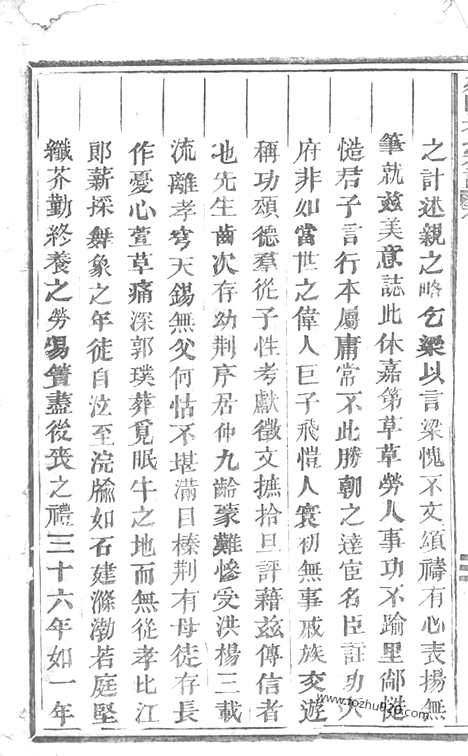 之計述親之略乞梁以言梁愧不文頌禱有心表揚無
筆就茲美意誌此休嘉第草草勞人事功不踰里鄰㧾
㧾君子言行本屬庸常不比勝朝之達宦名臣詎功
府非如當世之偉人巨子飛 人寰初無事戚族交遊
稱功頌德羣從子性考獻徵文摭拾旦評藉茲傳信者
也先生齒次存幼荆序居仲九齡蒙難慘受洪楊三載
流離孝穹天錫無父何怙不堪滿目榛荆有母徒存長
作憂心萱草痛深郭璞葬覓眠牛之地而無從孝比江
郎薪採舞象之年徒自泣至浣牏如石建滌渤若庭堅
纖芥勤終養之勞易簀盡從喪之禮三十六年如一年
www.tozhu920.com